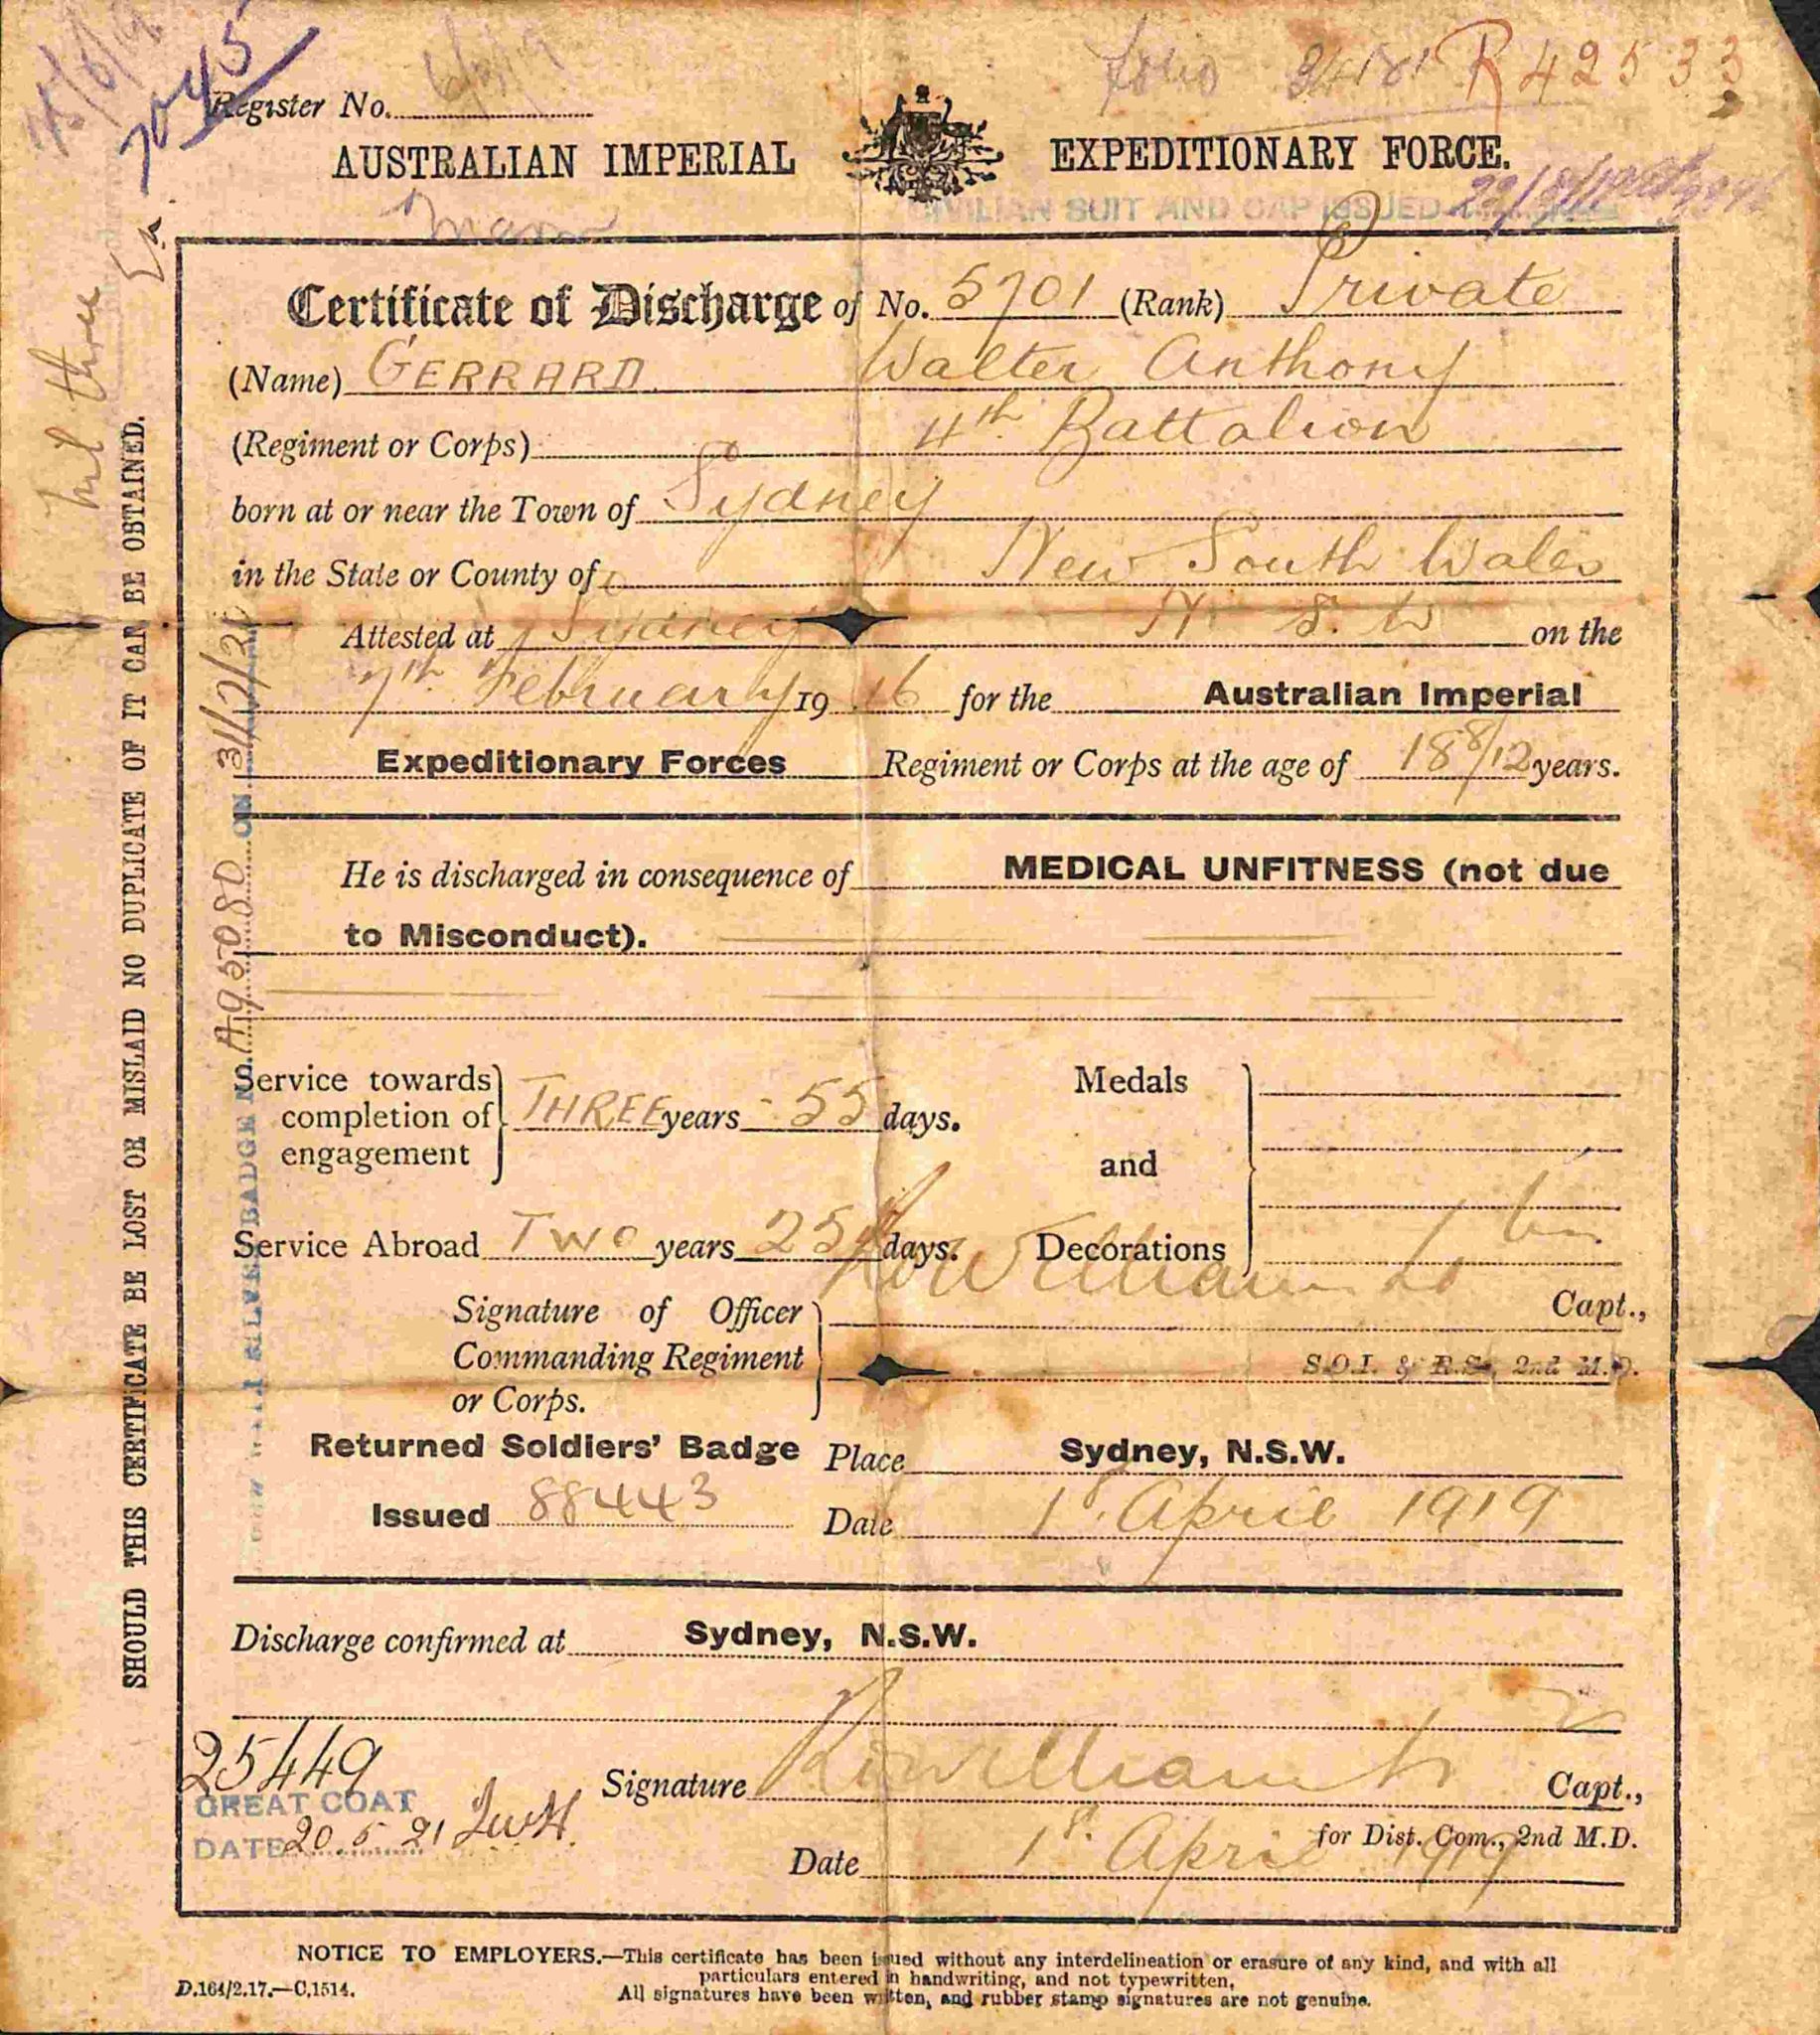 7045
Register No.
R 42533
AUSTRALIAN IMPERIAL EXPEDITIONARY FORCE.
CIVILIAN SUIT AND CAP ISSUED
Certificate of Discharge of No. 5701 (Rank) Private
(Name) GERRARD Walter Anthony
(Regiment or Corps) 4th Battalion
born at or near the Town of Sydney
in the State or County of New South Wales
Attested at Sydney N. S. W on the
7th February 1916 for the Australian Imperial
Expeditionary Forces Regiment or Corps at the age of 18 8/12 years.
He is discharged in consequence of MEDICAL UNFITNESS (not due
to Misconduct).
Service towards completion of engagement THREE years 55 days.
Medals and Decorations
Service Abroad Two years days.
Signature of Officer Commanding Regiment or Corps. Capt.,
S.O.I. & R.S., 2nd M.D.
Returned Soldiers' Badge Place Sydney, N.S.W.
Issued 88443 Date 1st April 1919
Discharge confirmed at Sydney, N.S.W.
25449
GREAT COAT
DATE 20.5.21
Signature Capt.,
for Dist. Com., 2nd M.D.
Date 1st April 1919
NOTICE TO EMPLOYERS.—This certificate has been issued without any interdelineation or erasure of any kind, and with all
particulars entered in handwriting, and not typewritten.
All signatures have been written, and rubber stamp signatures are not genuine.
D.164/2.17.—C.1514.
SHOULD THIS CERTIFICATE BE LOST OR MISLAID NO DUPLICATE OF IT CAN BE OBTAINED.
SILVER BADGE No. A95080 ON